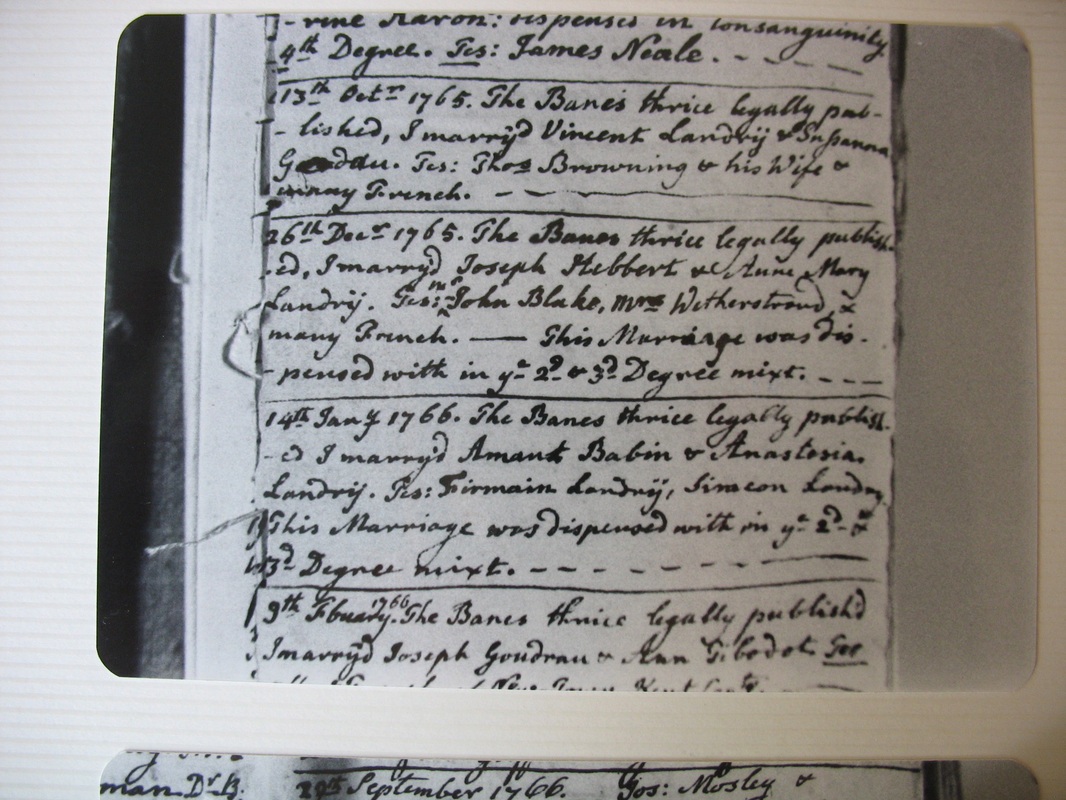 -rine Aaron: dispensed in Consanguinity
4th Degree. Tes: James Neale. - - - -
13th Octr 1765. The Banes thrice legally pub-
-lished, I marryd Vincent Landrij & Susanna
Tes: Thos Browning & his Wife &
many French. - - -
26th Decr 1765. The Banes thrice legally publish-
-ed, I marryd Joseph Hebbert & Anne Mary
Landrij. Tes: Mr John Blake, Mrs Wetherstrand, &
many French. — This Marriage was dis-
-pensed with in ye 2d & 3d Degree mixt. - - -
14th Jany 1766. The Banes thrice legally publish-
-ed I marryd Amant Babin & Anastasia
Landrij. Tes: Firmain Landrij, Simeon Landry
This Marriage was dispensed with in ye 2d &
3d Degree mixt. - - - - - -
9th Fbuary. 1766 The Banes thrice legally publishd
I marryd Joseph Goudrau & Ann Tibodot
man. Dr. B.
29th September 1766. Jos: Mosley &